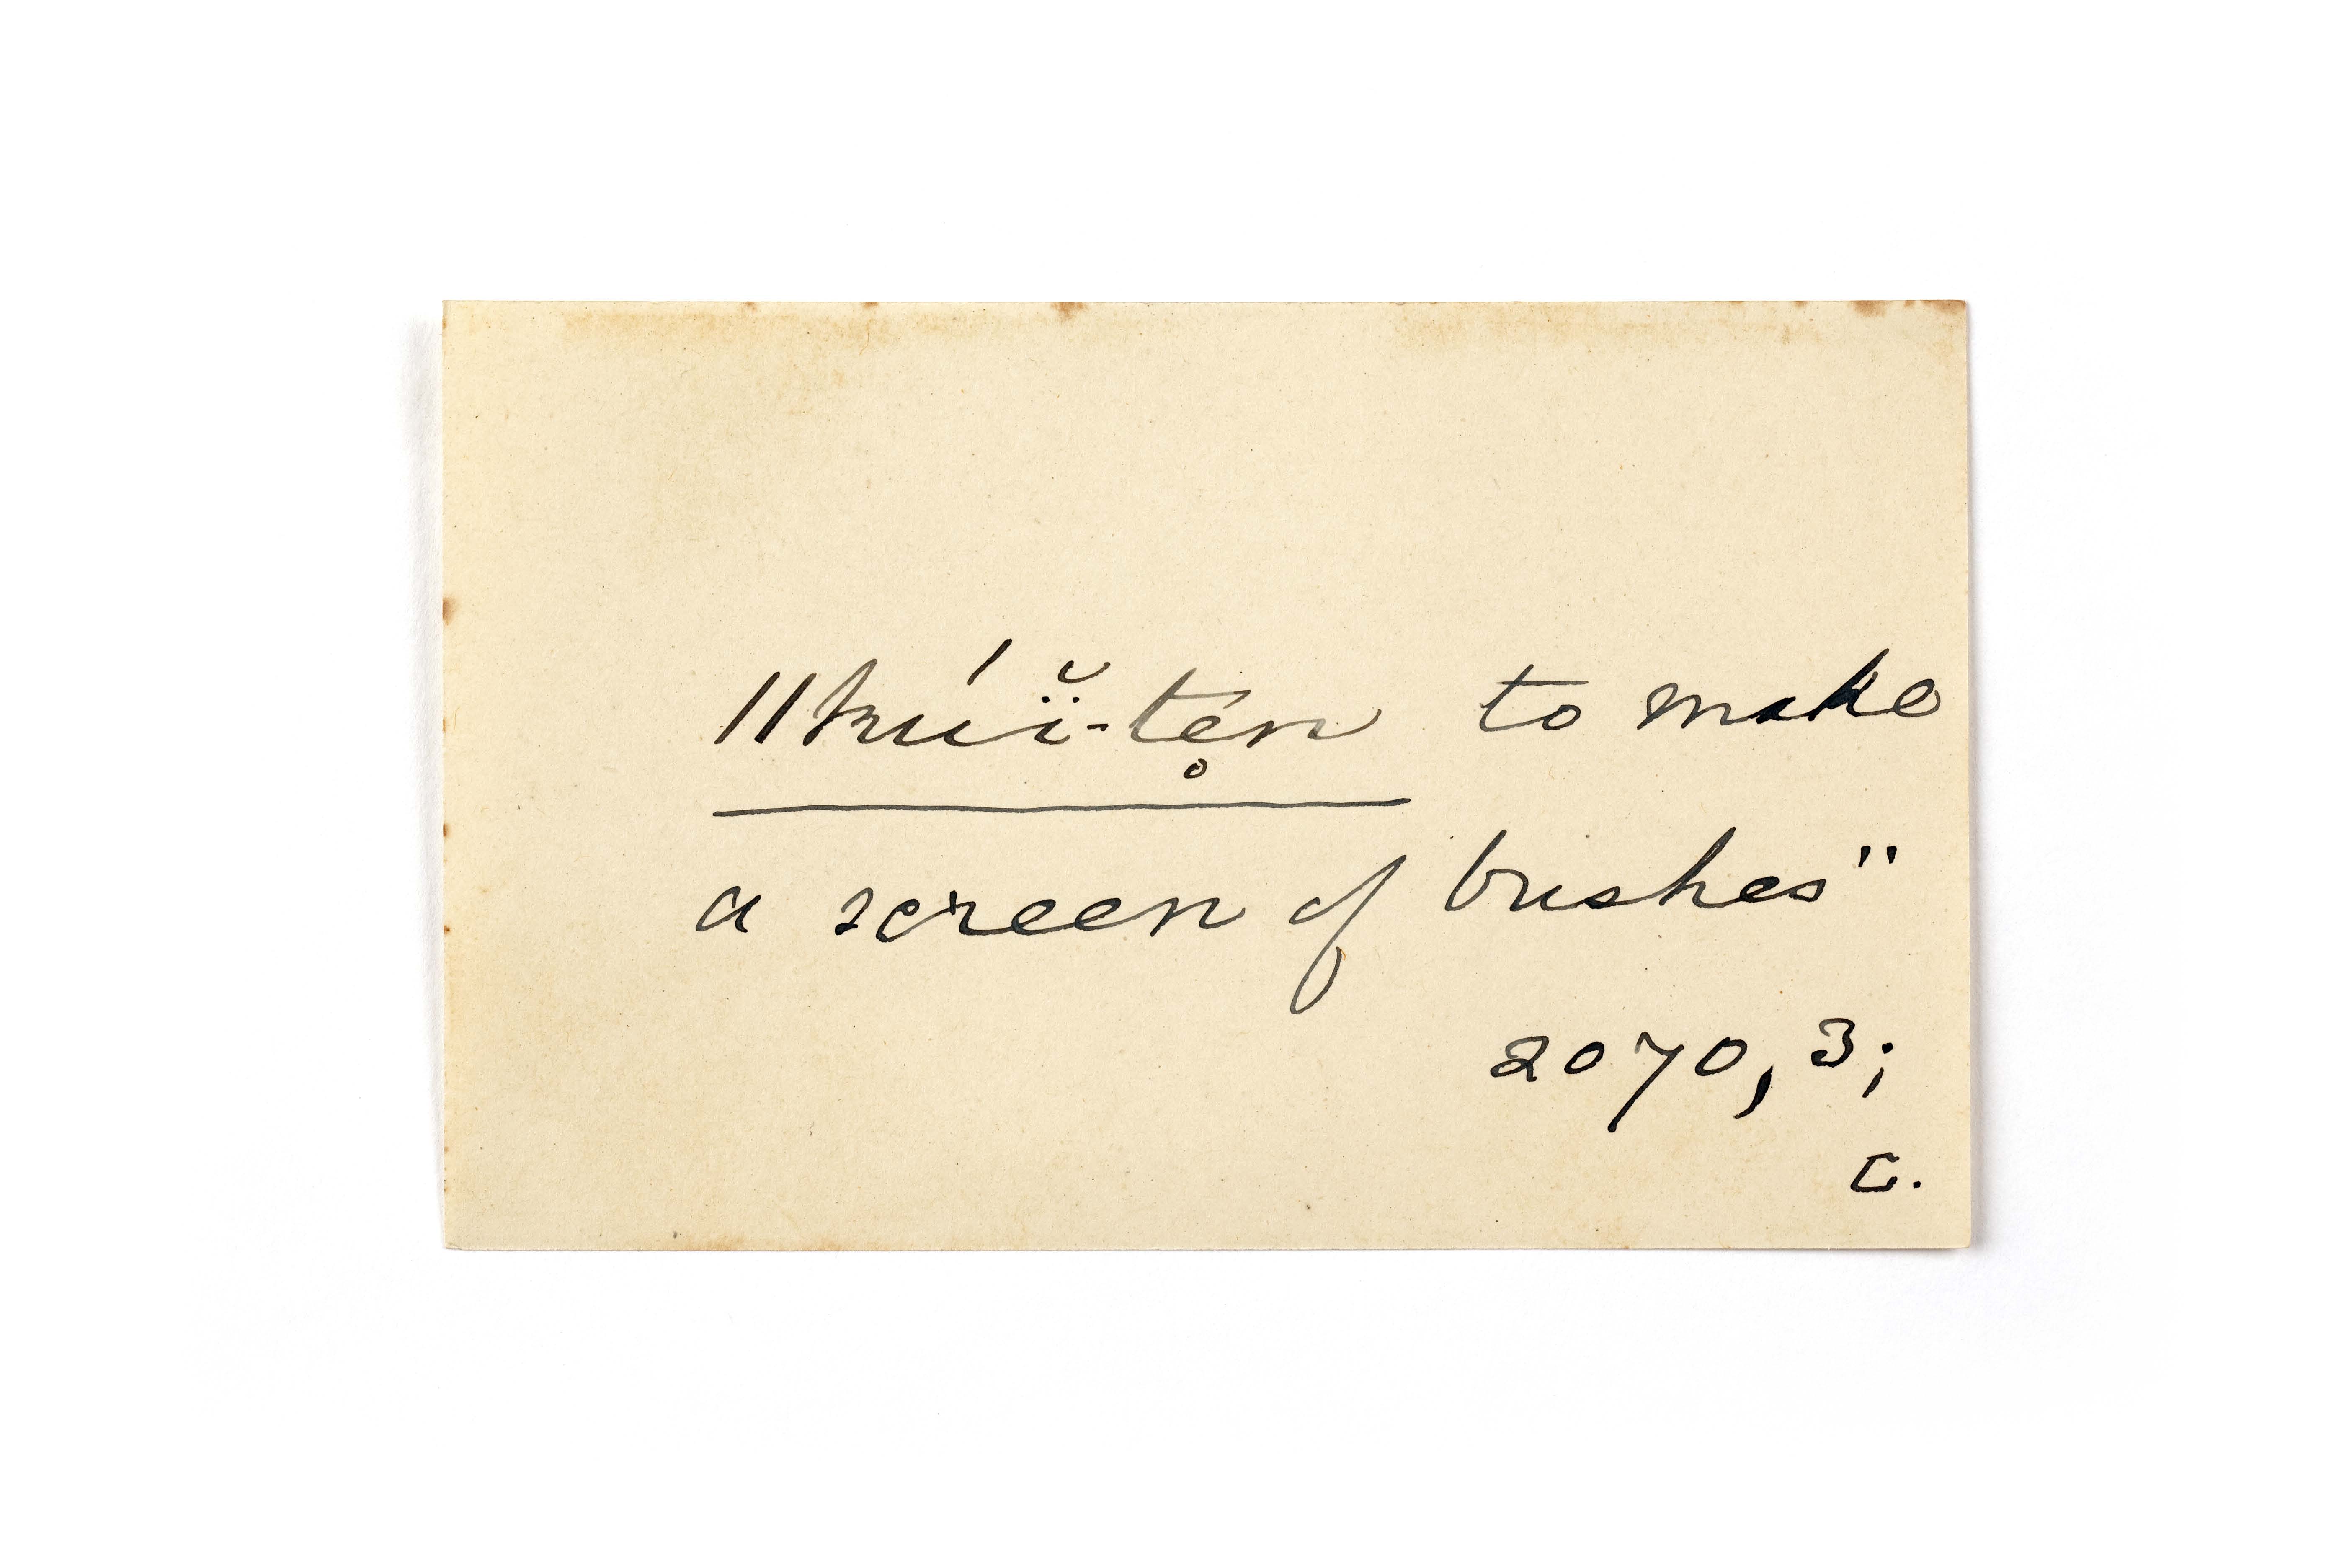 ǁkúï̆-tẹn to make
a screen of bushes"
2070, 3;
C.